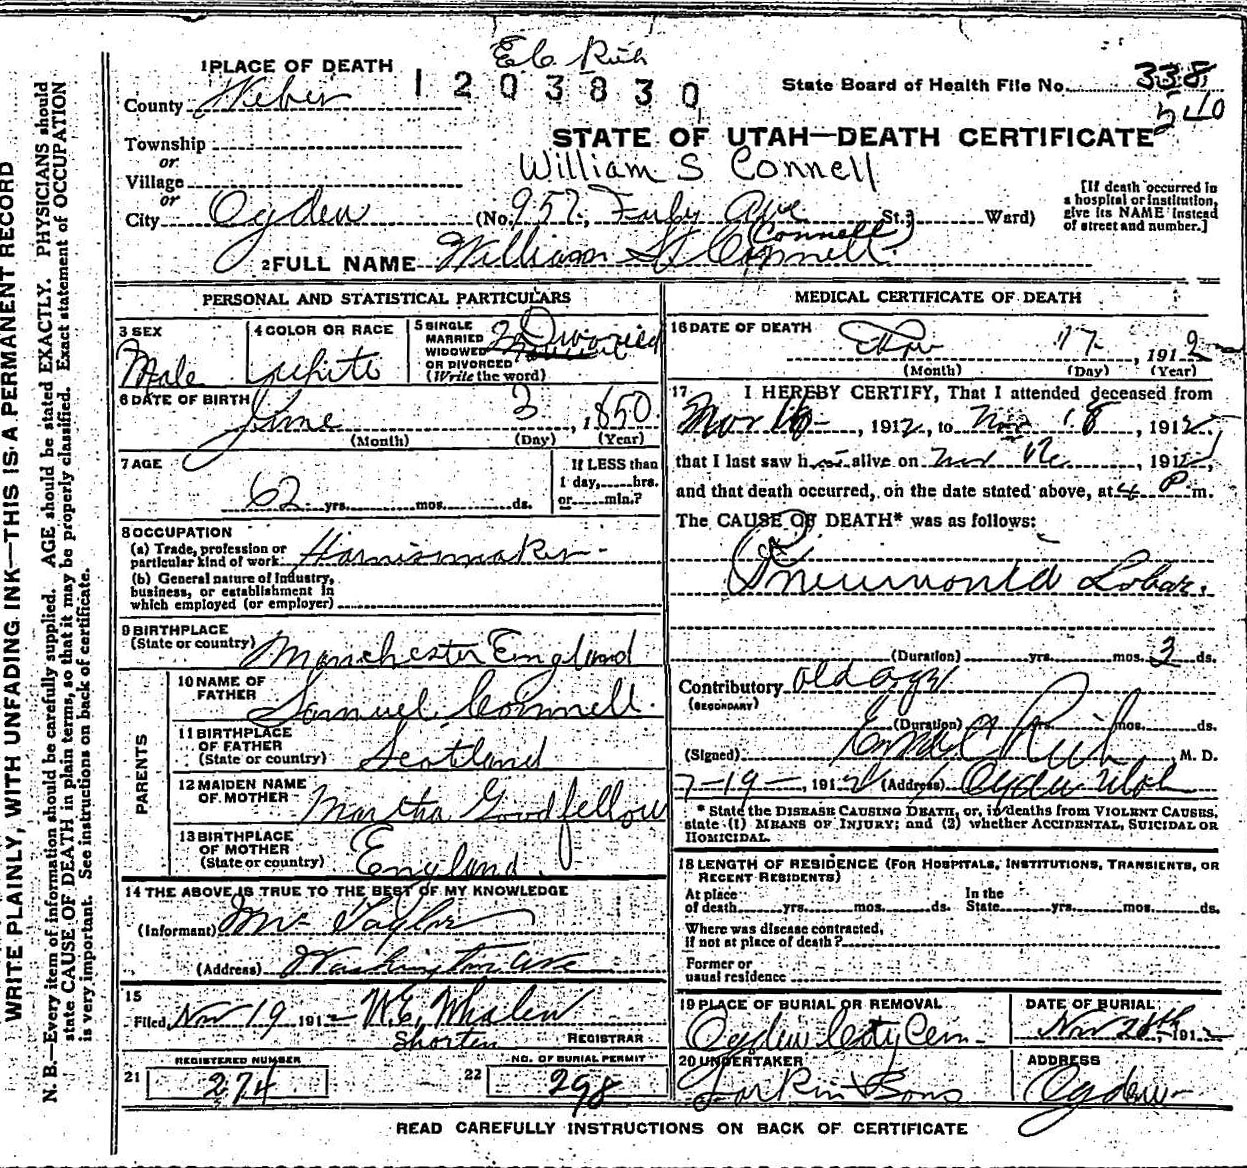 WRITE PLAINLY, WITH UNFADING INK—THIS IS A PERMANENT RECORD
N. B.—Every item of information should be carefully supplied. AGE should be stated EXACTLY. PHYSICIANS should
state CAUSE OF DEATH in plain terms, so that it may be properly classified. Exact statement of OCCUPATION
is very important. See instructions on back of certificate.
1 PLACE OF DEATH
1203830
State Board of Health File No. 338
540
County Weber
STATE OF UTAH—DEATH CERTIFICATE
Township
or
William S Connell
Village
or
[If death occurred in
a hospital or institution,
give its NAME instead
of street and number.]
City Ogden (No. 957 Ave St.; Ward)
(Connell)
2 FULL NAME William
PERSONAL AND STATISTICAL PARTICULARS
3 SEX
Male
4 COLOR OR RACE
white
5 SINGLE
MARRIED
WIDOWED
OR DIVORCED
(Write the word)
Divorced
6 DATE OF BIRTH June 3, 1850
(Month) (Day) (Year)
7 AGE
62 yrs. mos. ds.
If LESS than
1 day, hrs.
or min.?
8 OCCUPATION
(a) Trade, profession or
particular kind of work Harnismaker
(b) General nature of Industry,
business, or establishment in
which employed (or employer)
9 BIRTHPLACE
(State or country) Manchester England
PARENTS
10 NAME OF
FATHER Samuel Connell
11 BIRTHPLACE
OF FATHER
(State or country) Scotland
12 MAIDEN NAME
OF MOTHER Martha Goodfellow
13 BIRTHPLACE
OF MOTHER
(State or country) England
14 THE ABOVE IS TRUE TO THE BEST OF MY KNOWLEDGE
(Informant) Taylor
(Address) Washington ave
15
Filed Nov 19 1912 W.E. Whalen
Shorten REGISTRAR
REGISTERED NUMBER
21 274
NO. OF BURIAL PERMIT
22 298
MEDICAL CERTIFICATE OF DEATH
16 DATE OF DEATH
Nov 17, 1912
(Month) (Day) (Year)
17 I HEREBY CERTIFY, That I attended deceased from
1912, to 18, 1912,
that I last saw h alive on 1912,
and that death occurred, on the date stated above, at 4 P m.
The CAUSE OF DEATH* was as follows:
Pneumonia Lobar.
(Duration) yrs. mos. 3 ds.
Contributory old age
(SECONDARY)
(Duration) yrs. mos. ds.
(Signed) Rich M. D.
19 1912 (Address) Ogden Utah
* State the DISEASE CAUSING DEATH, or, in deaths from VIOLENT CAUSES,
state (1) MEANS OF INJURY; and (2) whether ACCIDENTAL, SUICIDAL OR
HOMICIDAL.
18 LENGTH OF RESIDENCE (FOR HOSPITALS, INSTITUTIONS, TRANSIENTS, OR
RECENT RESIDENTS)
At place In the
of death yrs. mos. ds. State yrs. mos. ds.
Where was disease contracted,
if not at place of death?
Former or
usual residence
19 PLACE OF BURIAL OR REMOVAL
Ogden City Cem
DATE OF BURIAL
Nov 1912
20 UNDERTAKER
Larkin & Sons
ADDRESS
Ogden
READ CAREFULLY INSTRUCTIONS ON BACK OF CERTIFICATE